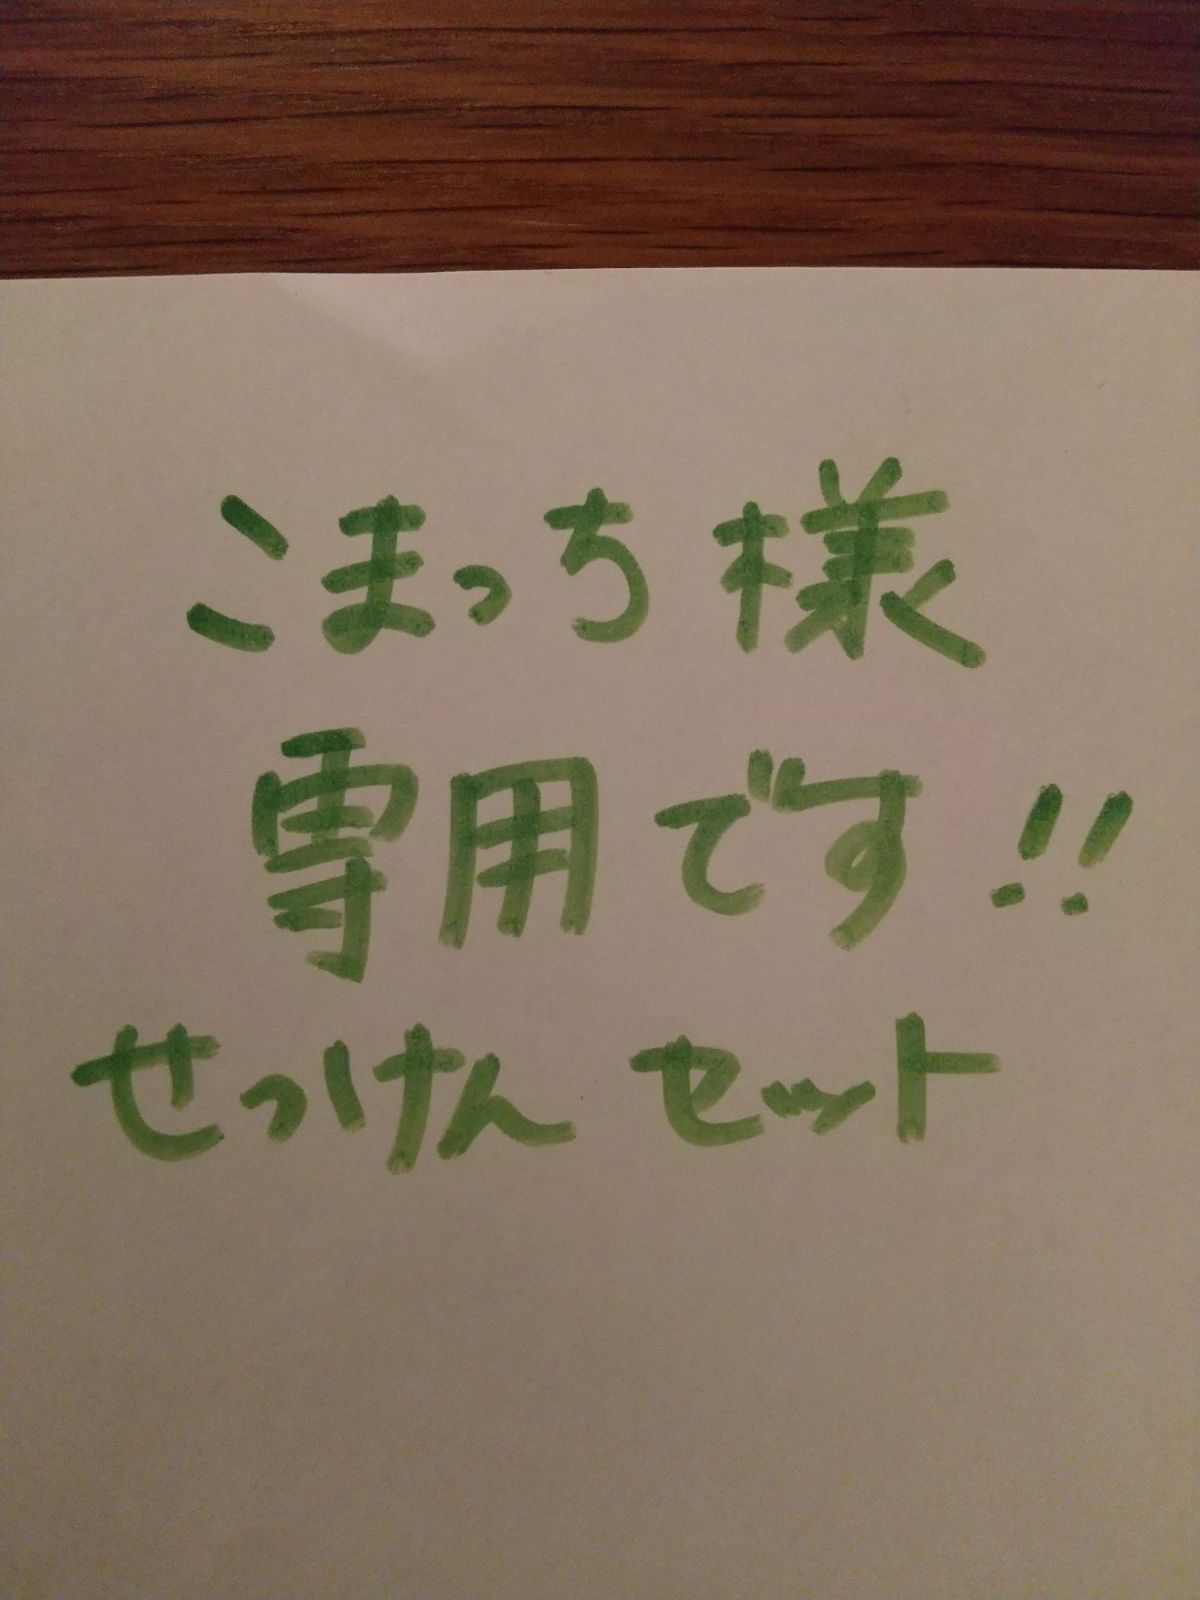 こまっち様
専用です!!
せっけんセット